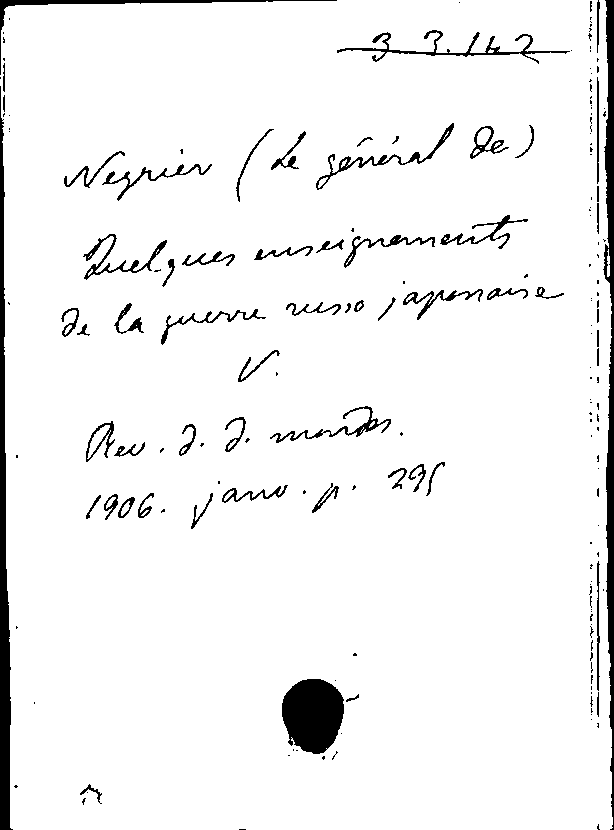 3 3.142
Negrier (Le général de)
Quelques enseignements
de la guerre russo japonaise
V.
Rev. d. d. mondes.
1906. janv. p. 295